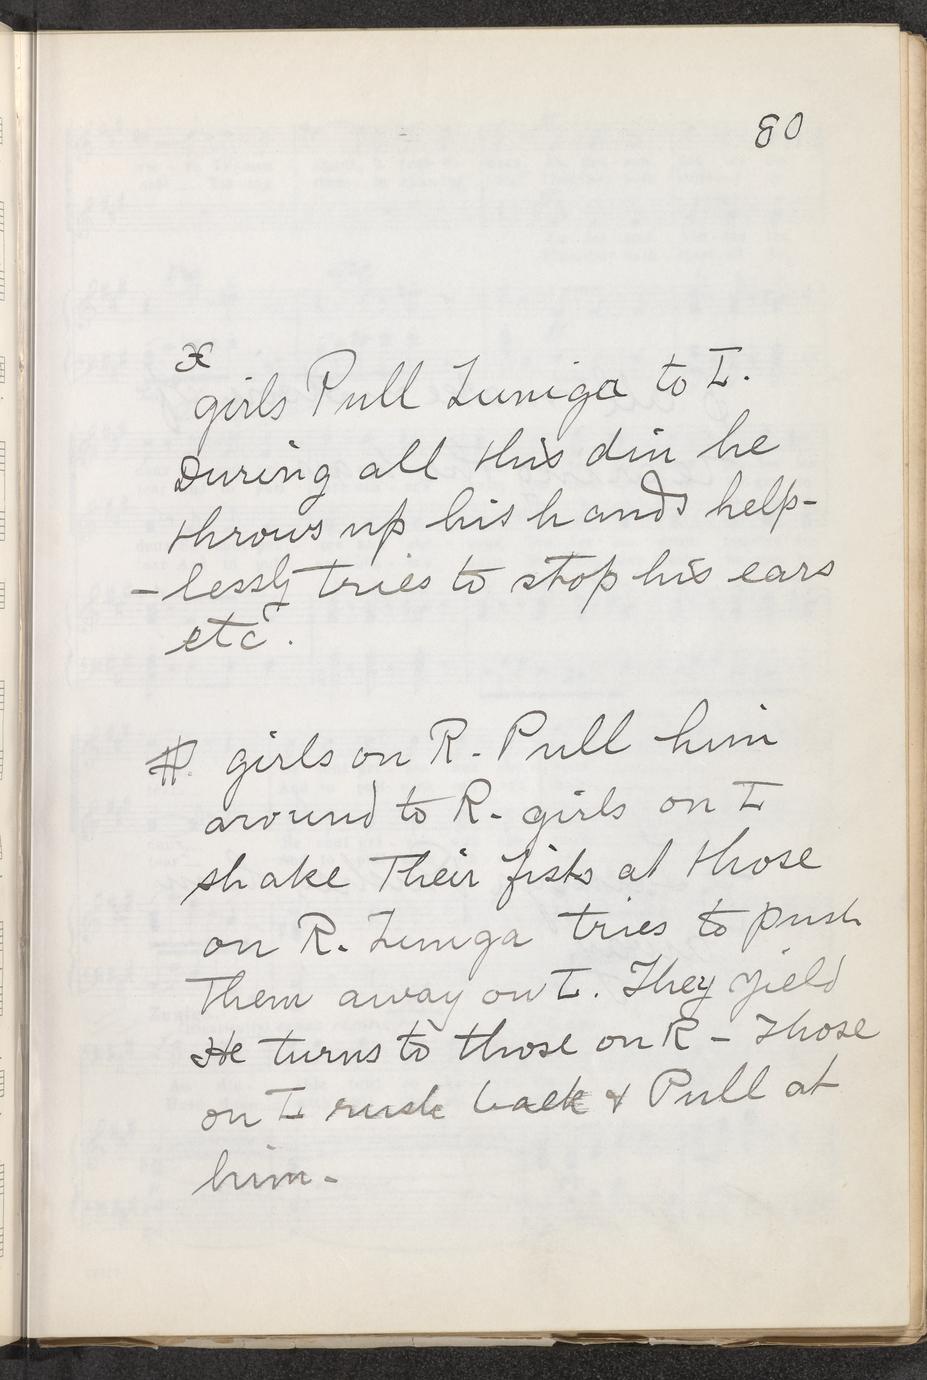 80
x
girls Pull Zuniga to L.
During all this din he
throws up his hands help-
-lessly tries to stop his ears
etc.
#. girls on R. Pull him
around to R. girls on L
shake Their fists at those
on R. Zuniga tries to push
Them away on L. They yield
He turns to those on R - Those
on L rush back & Pull at
him -